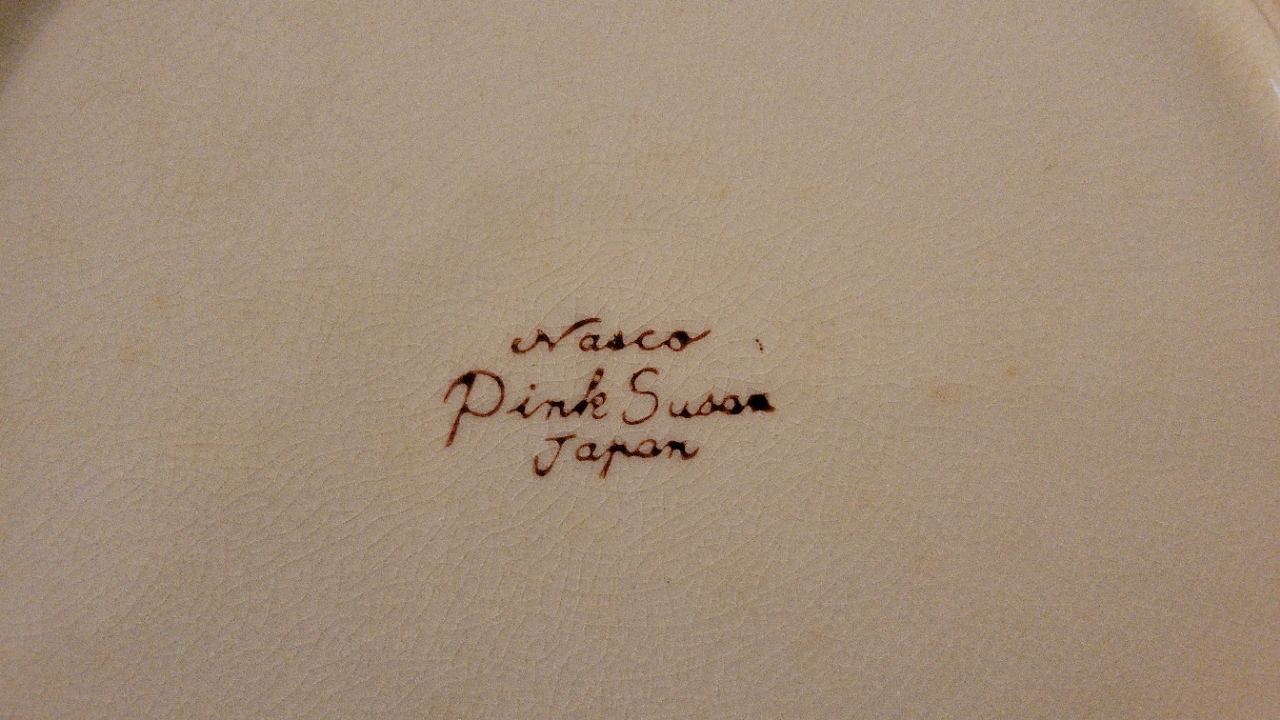 Nasco
Pink Susan
Japan